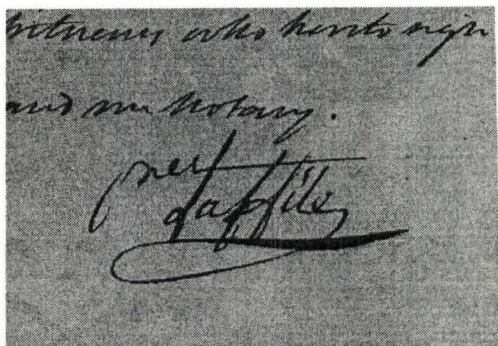 witnesses who hereto sign
and me Notary.
Laffite